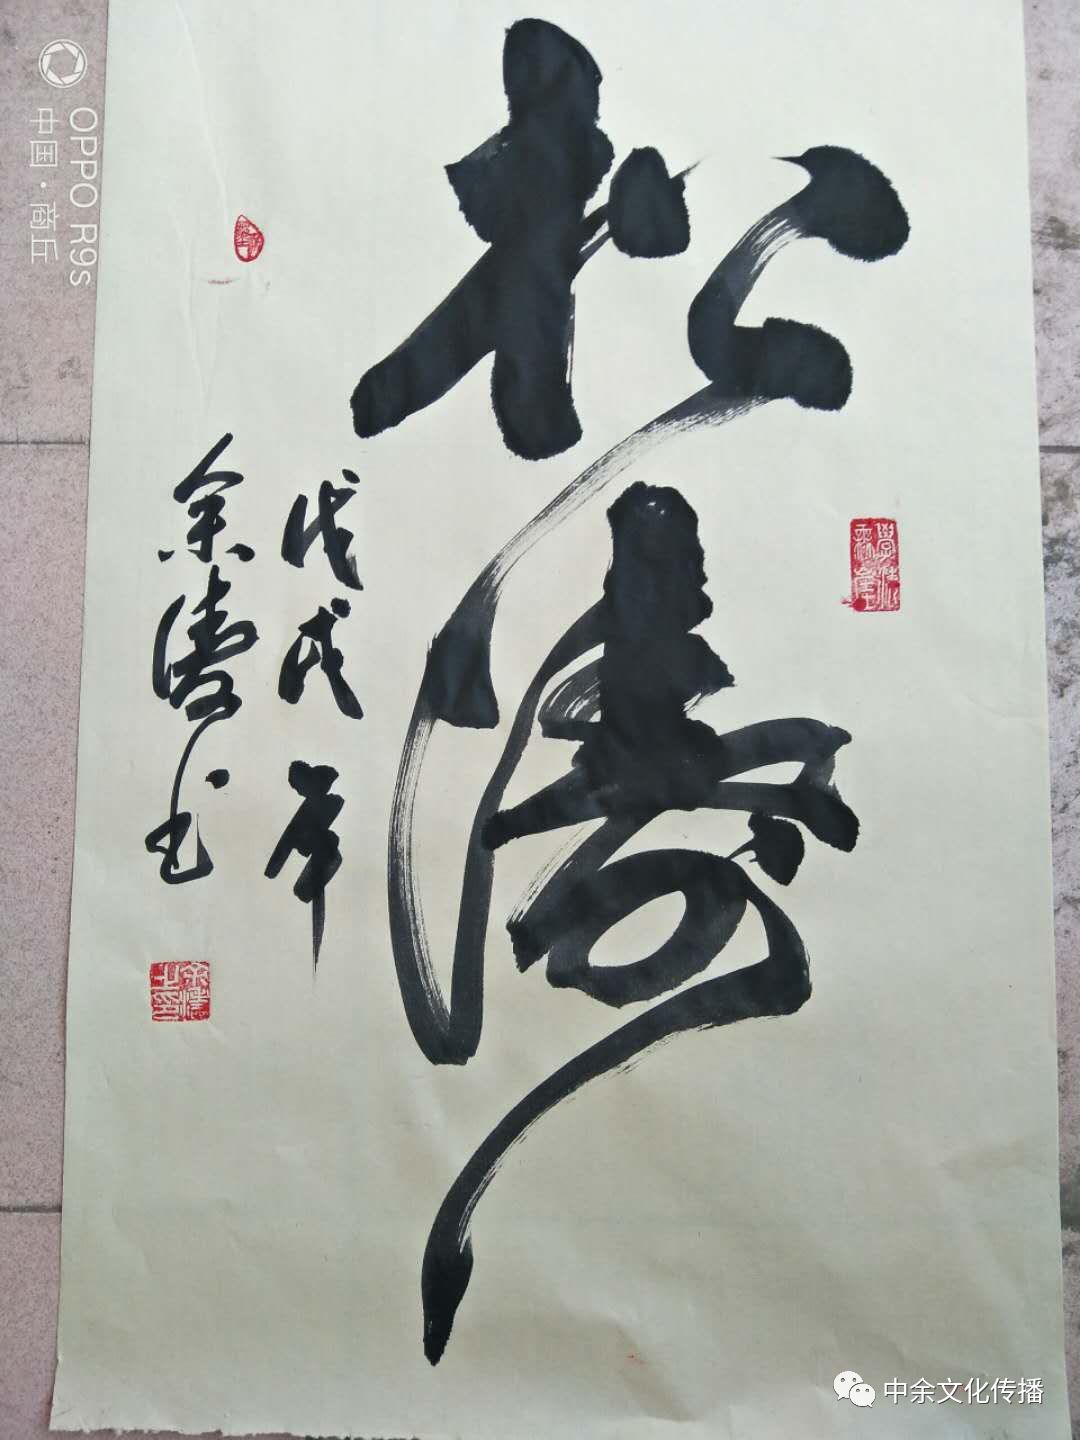 松涛
戊戌年
余涛书
OPPO R9s
中国·商丘
中余文化传播